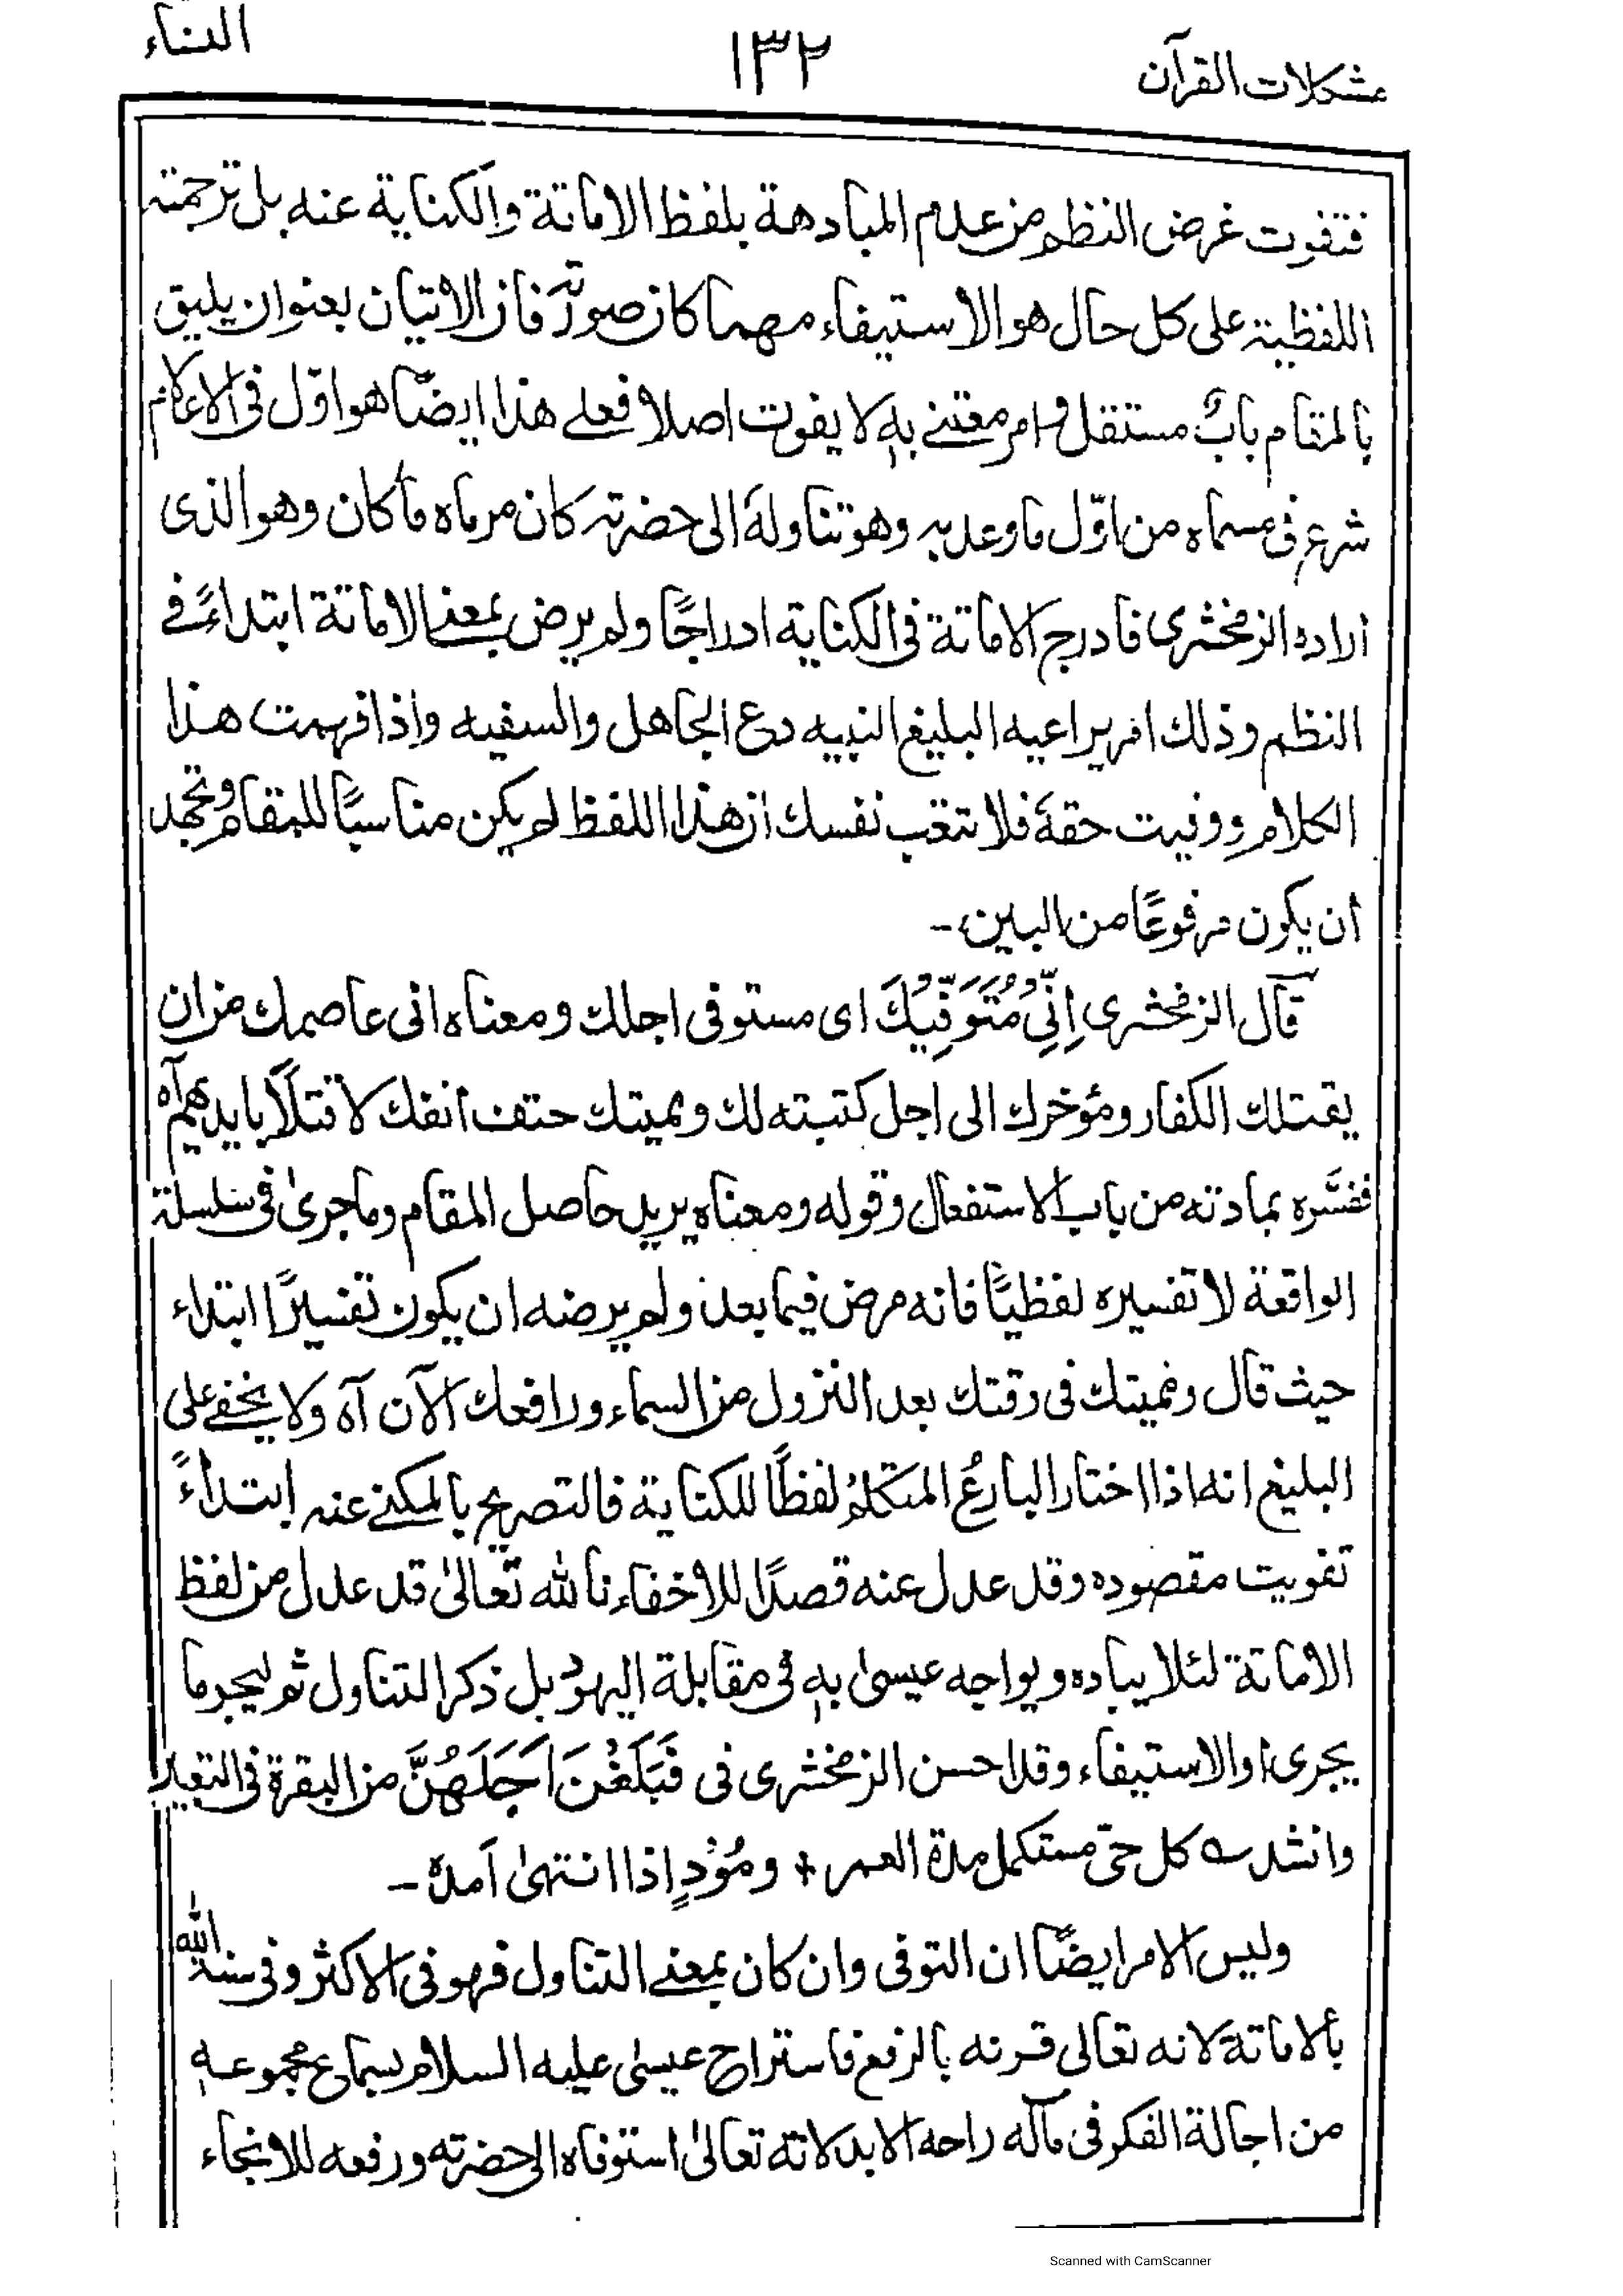 مشكلات القرآن ١٣٢ النساء
فتفوت غرض النظم من عدم المبادهة بلفظ الاماتة والكناية عنه بل ترجمته
اللفظية على كل حال هو الاستيفاء مهما كان صورته فان الاتيان بعنوان يليق
بالمقام باب مستقل وامر معتنى به لا يفوت اصلا فعلى هذا ايضًا هو اوّل فى الاعلام
شرع فى مسماه من اوّل ما وعد به وهو تناوله الى حضرته كان مرماه ما كان وهو الذى
اراده الزمخشرى فادرج الاماتة فى الكناية ادراجًا ولم يرض بمعنى الاماتة ابتداءً فى
النظم وذلك امر يراعيه البليغ النبيه دع الجاهل والسفيه واذا فهمت هذا
الكلام ووفيت حقهٗ فلا تتعب نفسك ان هذا اللفظ لم يكن مناسبًا للمقام وتجهد
ان يكون مرفوعًا من البين ــ
قال الزمخشرى اِنِّىْ مُتَوَفِّيْكَ اى مستوفى اجلك ومعناه انى عاصمك من ان
يقتلك الكفار ومؤخرك الى اجل كتبته لك ومميتك حتف انفك لا قتلًا بايديهم آه
ففسّره بمادته من باب الاستفعال وقوله ومعناه يريد حاصل المقام وما جرىٰ فى سلسلة
الواقعة لا تفسيره لفظيًا فانه مرض فيما بعد ولم يرضه ان يكون تفسيرًا ابتداء
حيث قال ومميتك فى وقتك بعد النزول من السماء ورافعك الآن آه ولا يخفى على
البليغ انه اذا اختار البارعُ المتكلمُ لفظًا للكناية فالتصريح بالمكنى عنه ابتداءً
تفويت مقصوده وقد عدل عنه قصدًا للاخفاء فالله تعالىٰ قد عدل من لفظ
الاماتة لئلا يباده ويواجه عيسىٰ به فى مقابلة اليهود بل ذكر التناول ثم ليجر ما
يجرى او الاستيفاء وقد احسن الزمخشرى فى فَبَلَغْنَ اَجَلَهُنَّ من البقرة فى التعبير
وانشد ؎ كل حىّ مستكمل مدة العمر ٭ ومُؤدٍ اذا انتهىٰ اَمدهٗ ــ
وليس الامر ايضًا ان التوفى وان كان بمعنى التناول فهو فى الاكثر وفى سنة الله
بالاماتة لانه تعالى قرنه بالرفع فاستراح عيسىٰ عليه السلام بسماع مجموعه
من اجالة الفكر فى مآله راحه الابد لانه تعالىٰ استوفاه الى حضرته ورفعه للانجاء
Scanned with CamScanner